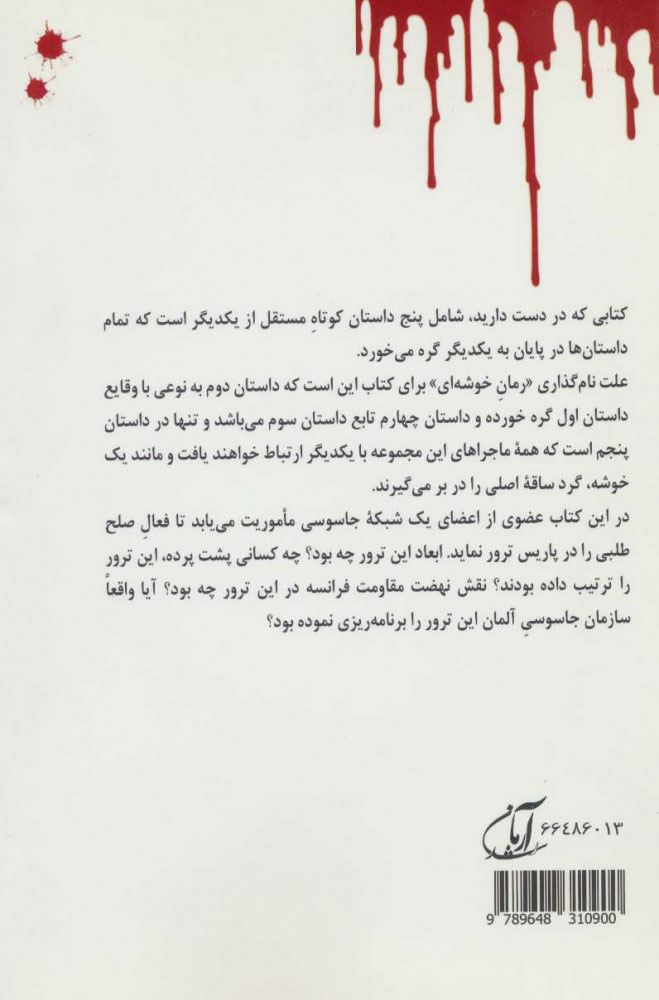 کتابی که در دست دارید، شامل پنج داستان کوتاهِ مستقل از یکدیگر است که تمام
داستان‌ها در پایان به یکدیگر گره می‌خورد.
علت نام‌گذاری «رمانِ خوشه‌ای» برای کتاب این است که داستان دوم به نوعی با وقایع
داستان اول گره خورده و داستان چهارم تابع داستان سوم می‌باشد و تنها در داستان
پنجم است که همهٔ ماجراهای این مجموعه با یکدیگر ارتباط خواهند یافت و مانند یک
خوشه، گرد ساقهٔ اصلی را در بر می‌گیرند.
در این کتاب عضوی از اعضای یک شبکهٔ جاسوسی مأموریت می‌یابد تا فعالِ صلح
طلبی را در پاریس ترور نماید. ابعاد این ترور چه بود؟ چه کسانی پشت پرده، این ترور
را ترتیب داده بودند؟ نقش نهضت مقاومت فرانسه در این ترور چه بود؟ آیا واقعاً
سازمان جاسوسیِ آلمان این ترور را برنامه‌ریزی نموده بود؟
آرمان ۶۶۴۸۶۰۱۳
9 789648 310900